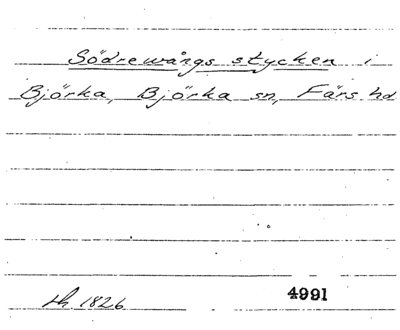 Södrewångs stycken i
Björka, Björka sn, Färs hd
Lh 1826
4991